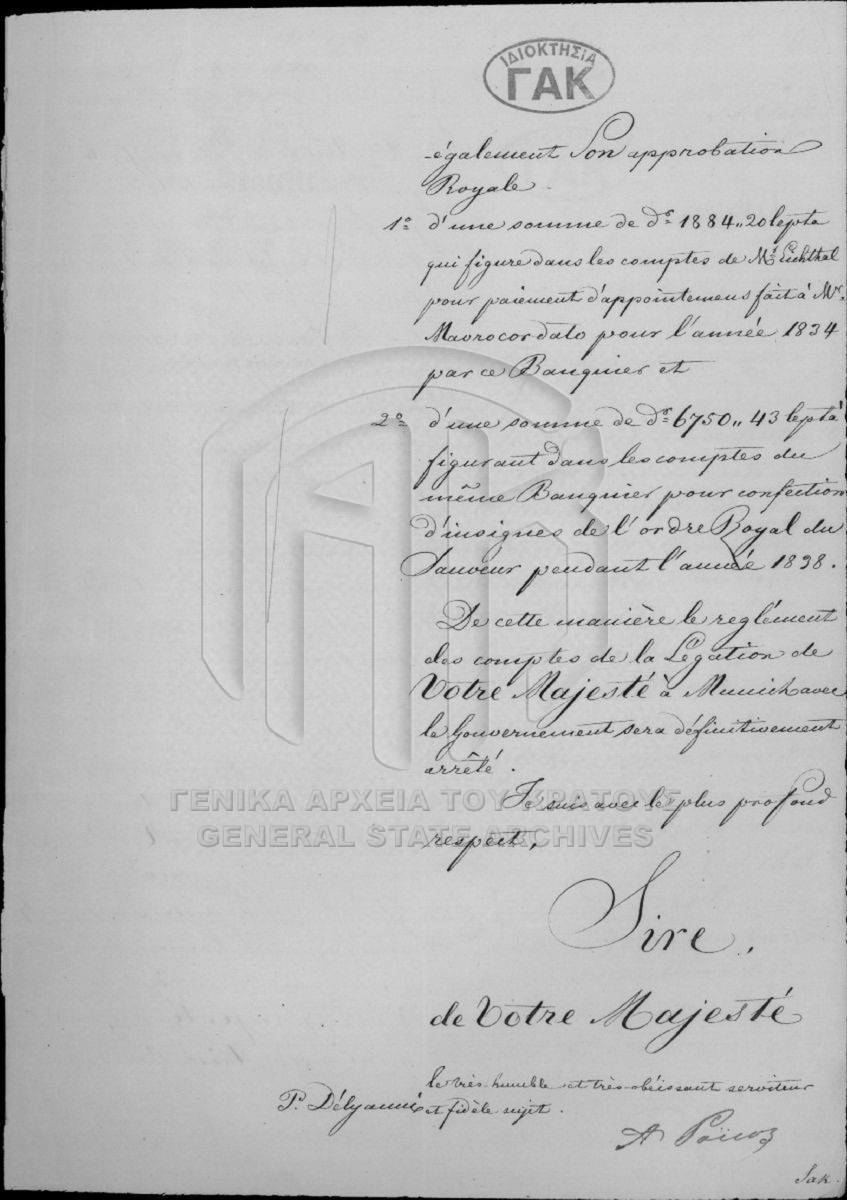 ΙΔΙΟΚΤΗΣΙΑ
ΓΑΚ
également Son approbation
Royale.
1º d'une somme de drs 1884,, 20 lepta
qui figure dans les comptes de Mr Eichthal
pour paiement d'appointemens fait à Mr
Mavrocordato pour l'année 1834
par ce Banquier et
2º d'une somme de drs 6750,, 43 lepta
figurant dans les comptes du
même Banquier pour confection
d'insignes de l'ordre Royal du
Sauveur pendant l'année 1838.
De cette manière le reglément
des comptes de la Légation de
Votre Majesté à Munich avec
le Gouvernement sera définitivement
arrêté.
ΓΕΝΙΚΑ ΑΡΧΕΙΑ ΤΟΥ ΚΡΑΤΟΥΣ
GENERAL STATE ARCHIVES
Je suis avec le plus profond
respect,
Sire,
de Votre Majesté
le très-humble et très-obéissant serviteur
et fidèle sujet.
P. Délyanni
A Païcos